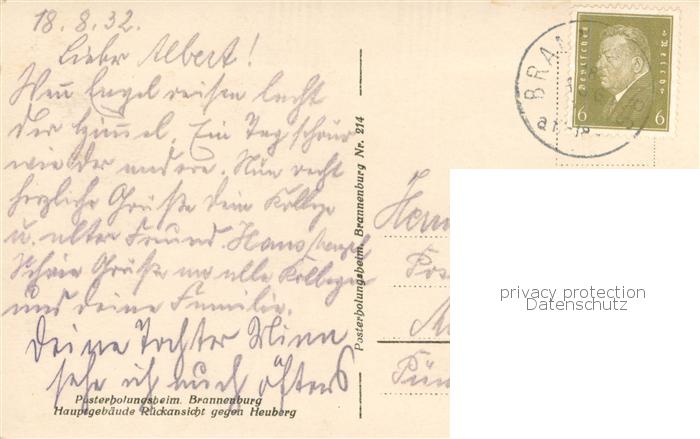 18.8.32.
Lieber Albert!
Wenn Engel reisen lacht
der Himmel. Ein Tag schöner
wie der andere. Nun recht
herzliche Grüße dem Kollege
u. alter Freund Hans
Schöne Grüße an alle Kollegen
und deine Familie.
Deine Tochter Minna
sehe ich auch öfters
Posterholungsheim. Brannenburg
Hauptgebäude Rückansicht gegen Heuberg
Posterholungsheim. Brannenburg Nr. 214
BRAN
Deutsches Reich
6 6
Herrn
Pos
privacy protection
Datenschutz